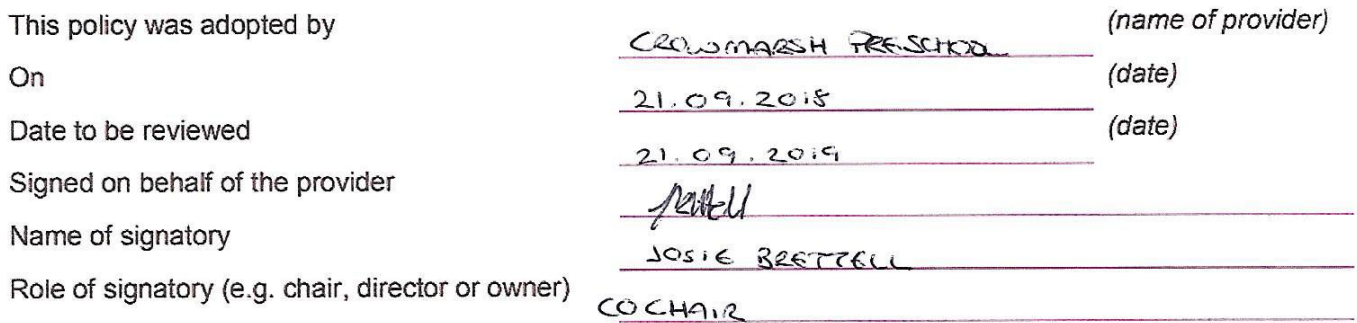 This policy was adopted by CROWMARSH PRESCHOOL (name of provider)
On 21.09.2018 (date)
Date to be reviewed 21.09.2019 (date)
Signed on behalf of the provider
Name of signatory JOSIE BRETTELL
Role of signatory (e.g. chair, director or owner) CO CHAIR